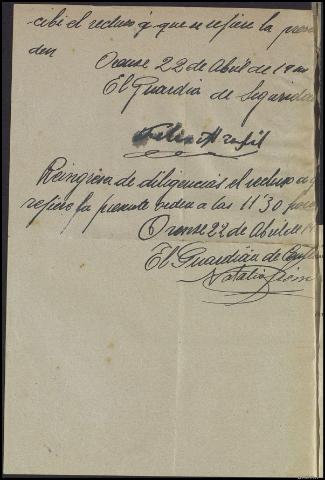 cibi el recluso q que se refiere la prese
den
Orense 22 de Abril de 19
El Guardia de Segurida
Felix
Reingresa de diligencias el recluso a q
refiere la presente orden a las 11'30 
Orense 22 de Abril de 19
El Guardián de
Natalio